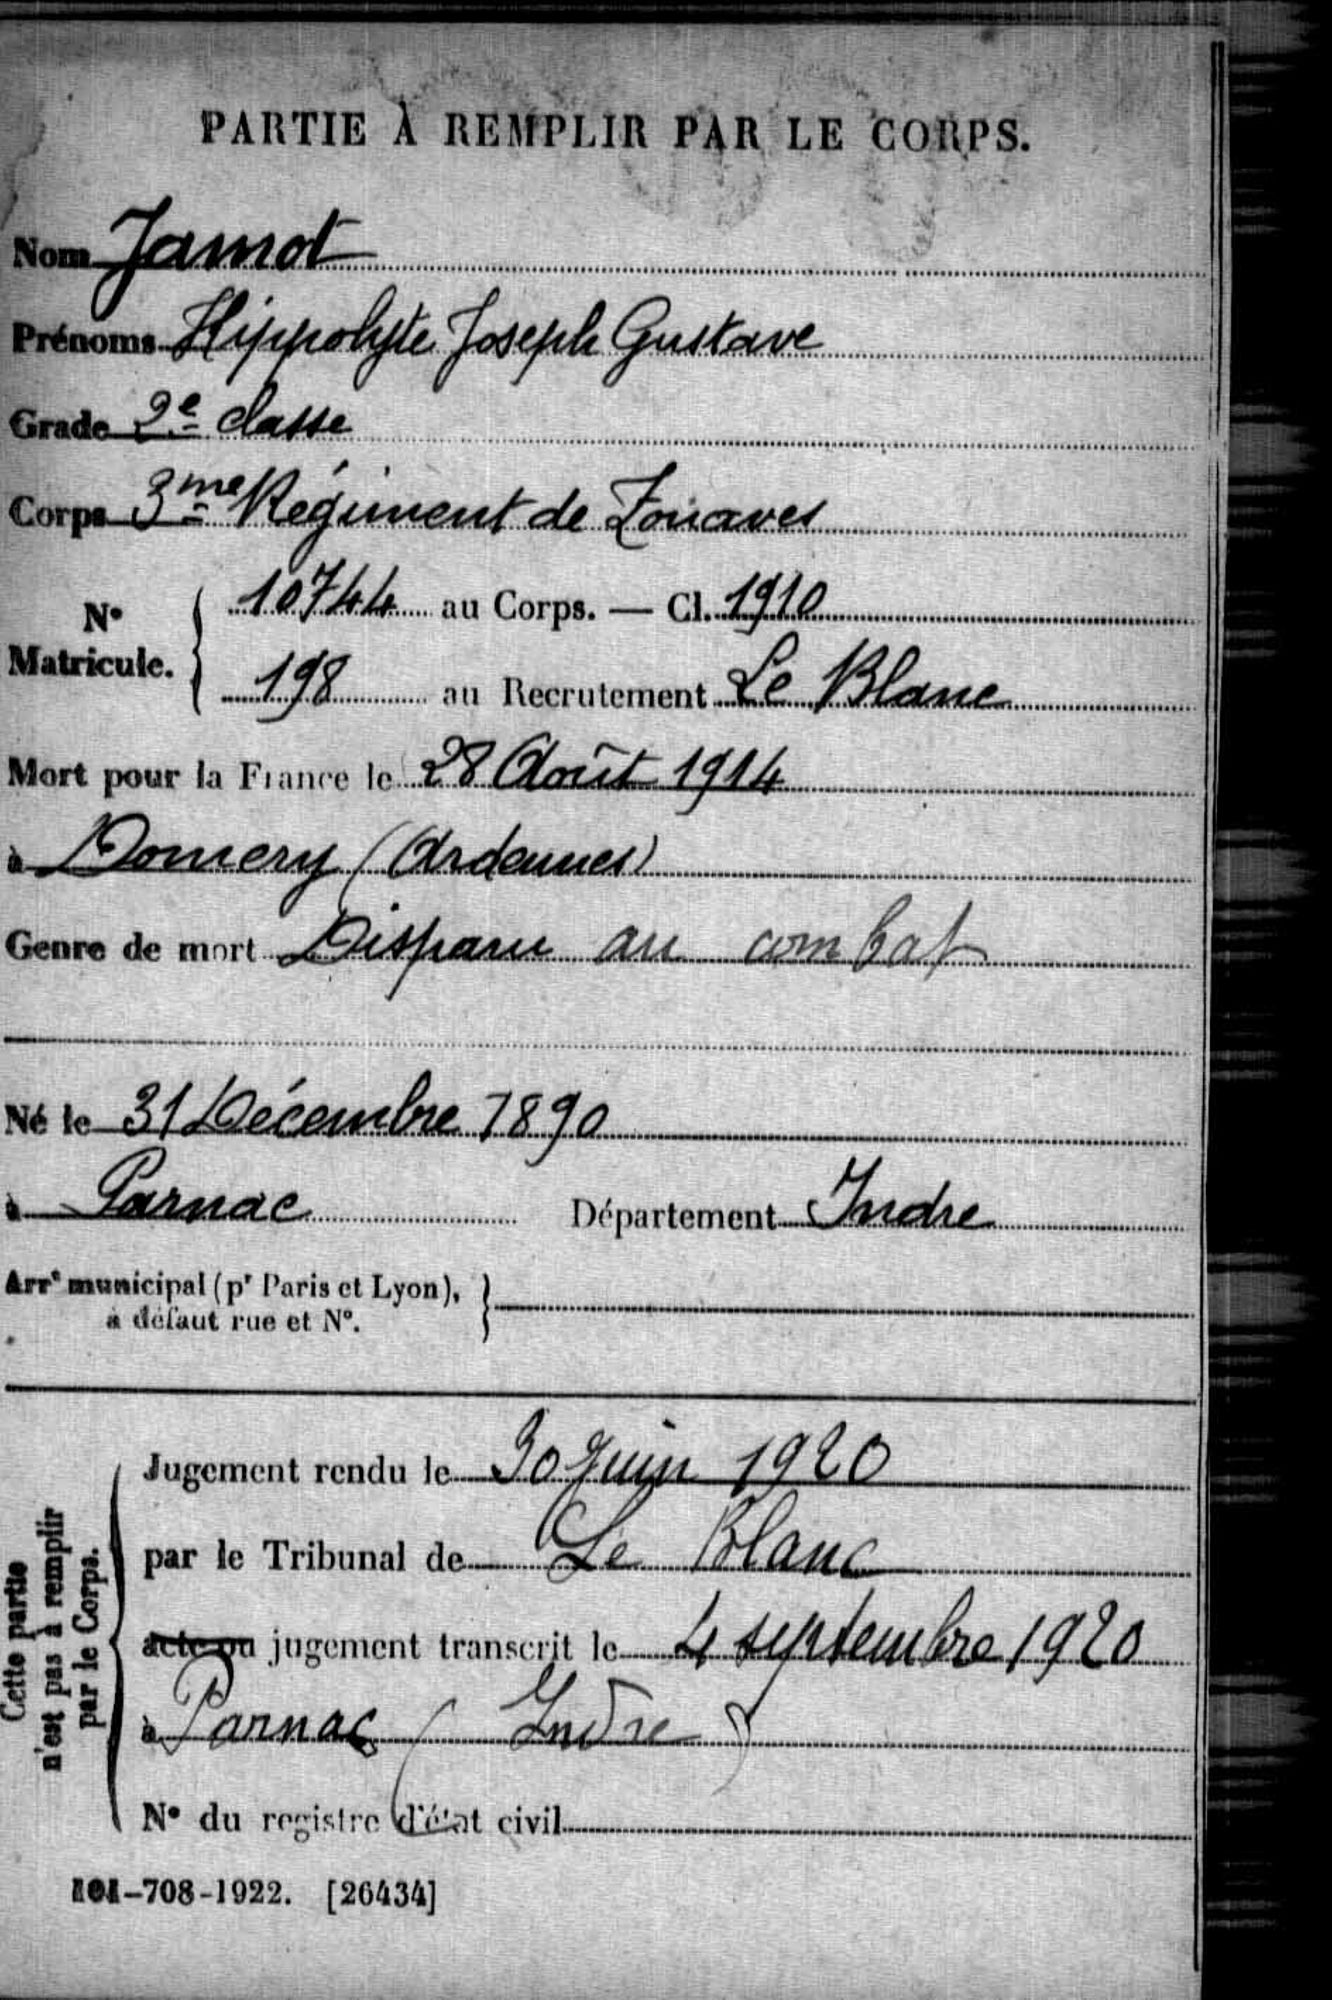 PARTIE À REMPLIR PAR LE CORPS.
Nom Jamot
Prénoms Hippolyte Joseph Gustave
Grade 2e classe
Corps 3me Régiment de Zouaves
No Matricule. { 10744 au Corps. — Cl. 1910
198 au Recrutement Le Blanc
Mort pour la France le 28 Août 1914
à Domery (Ardennes)
Genre de mort Disparu au combat
Né le 31 Décembre 1890
à Parnac Département Indre
Arrt municipal (pr Paris et Lyon), }
à défaut rue et No.
Cette partie
n'est pas à remplir
par le Corps.
Jugement rendu le 30 Juin 1920
par le Tribunal de Le Blanc
acte ou jugement transcrit le 4 septembre 1920
à Parnac (Indre)
No du registre d'état civil
101-708-1922. [26434]